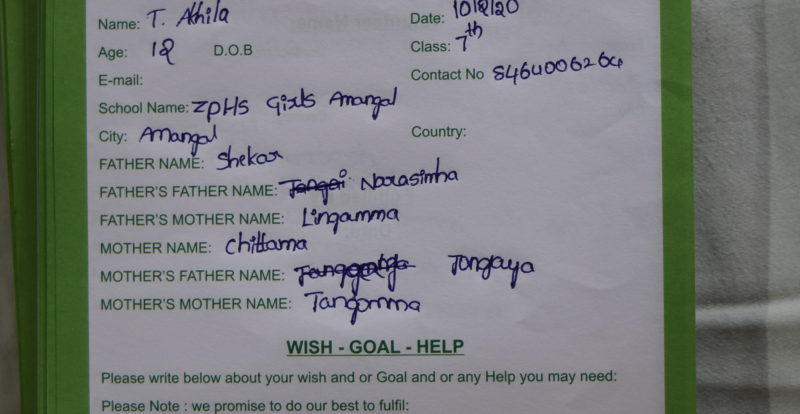 Name: T. Akhila Date: 10/2/20
Age: 12 D.O.B Class: 7th
E-mail: Contact No 8464006264
School Name: ZPHS Girls Amangal
City: Amangal Country:
FATHER NAME: Shekar
FATHER'S FATHER NAME: Narasimha
FATHER'S MOTHER NAME: Lingamma
MOTHER NAME: Chittama
MOTHER'S FATHER NAME: Jangaya
MOTHER'S MOTHER NAME: Jangamma
WISH - GOAL - HELP
Please write below about your wish and or Goal and or any Help you may need:
Please Note : we promise to do our best to fulfil: